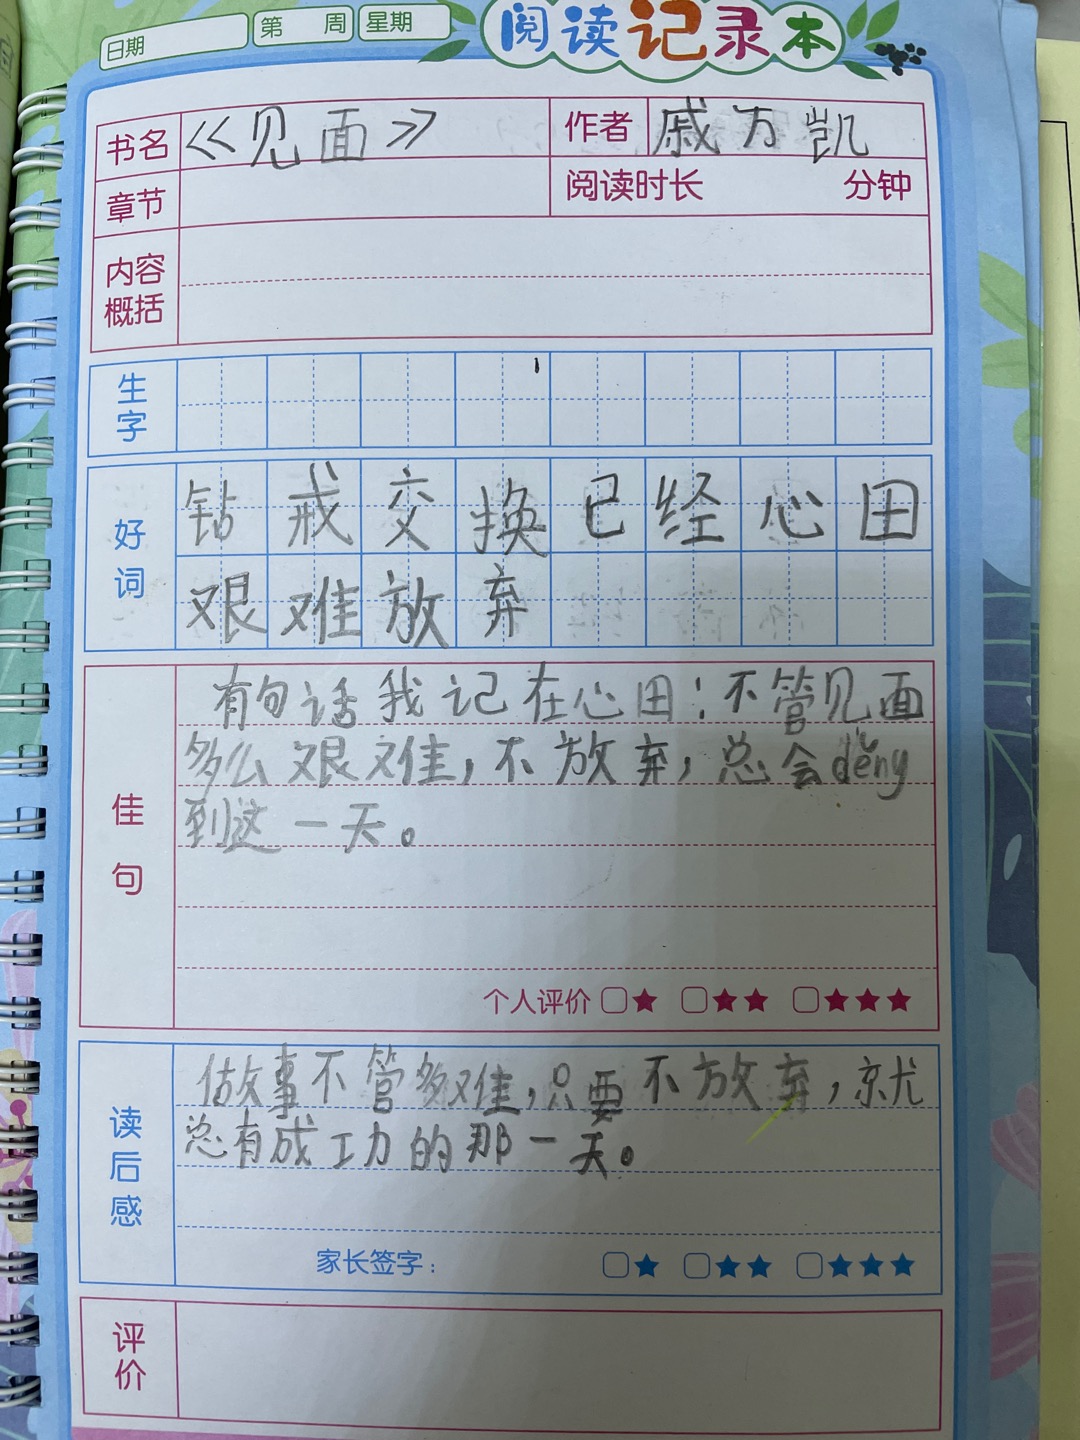 日期 第 周 星期 阅读记录本
书名 《见面》 作者 戚万凯
章节 阅读时长 分钟
内容
概括
生
字
好
词
钻戒交换已经心田
艰难放弃
佳
句
有句话我记在心田:不管见面
多么艰难,不放弃,总会děng
到这一天。
个人评价 □★ □★★ □★★★
读
后
感
做故事不管多难,只要不放弃,就
总有成工力的那一天。
家长签字: □★ □★★ □★★★
评
价